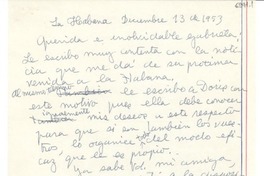 La Habana Diciembre 13 de 1953
Querida e inolvidable Gabriela:
Le escribo muy contenta con la noti-
cia que me da de su próxima
venida a la Habana.
Al mismo tiempo le escribo a Doris con
este motivo pues ella debe conocer
igualmente mis deseos a este respecto
para que si son también los vues-
tros, lo organice del modo efi-
caz que le es propio.
Ya sabe Ud. mi amiga,